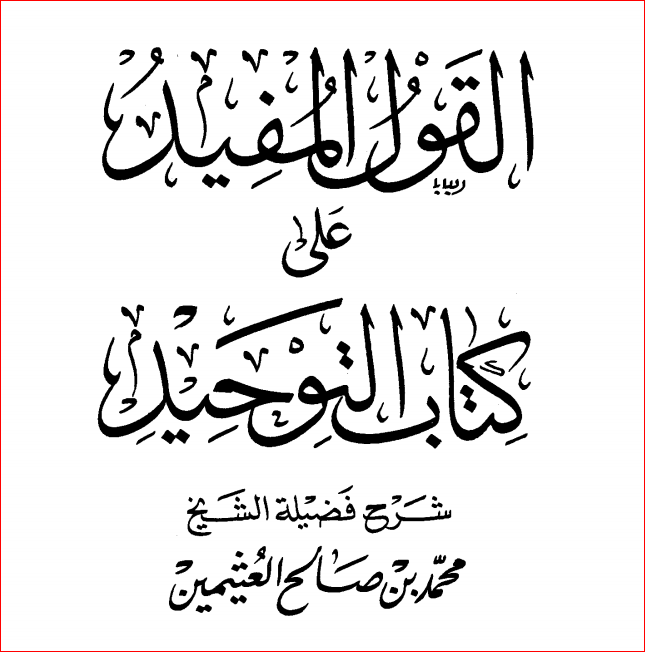 القَوْلُ المُفِيدُ
عَلَى
كِتَابِ التَّوْحِيدِ
شَرْح فَضِيلَة الشَّيخ
محمّد بن صَالح العُثيمين